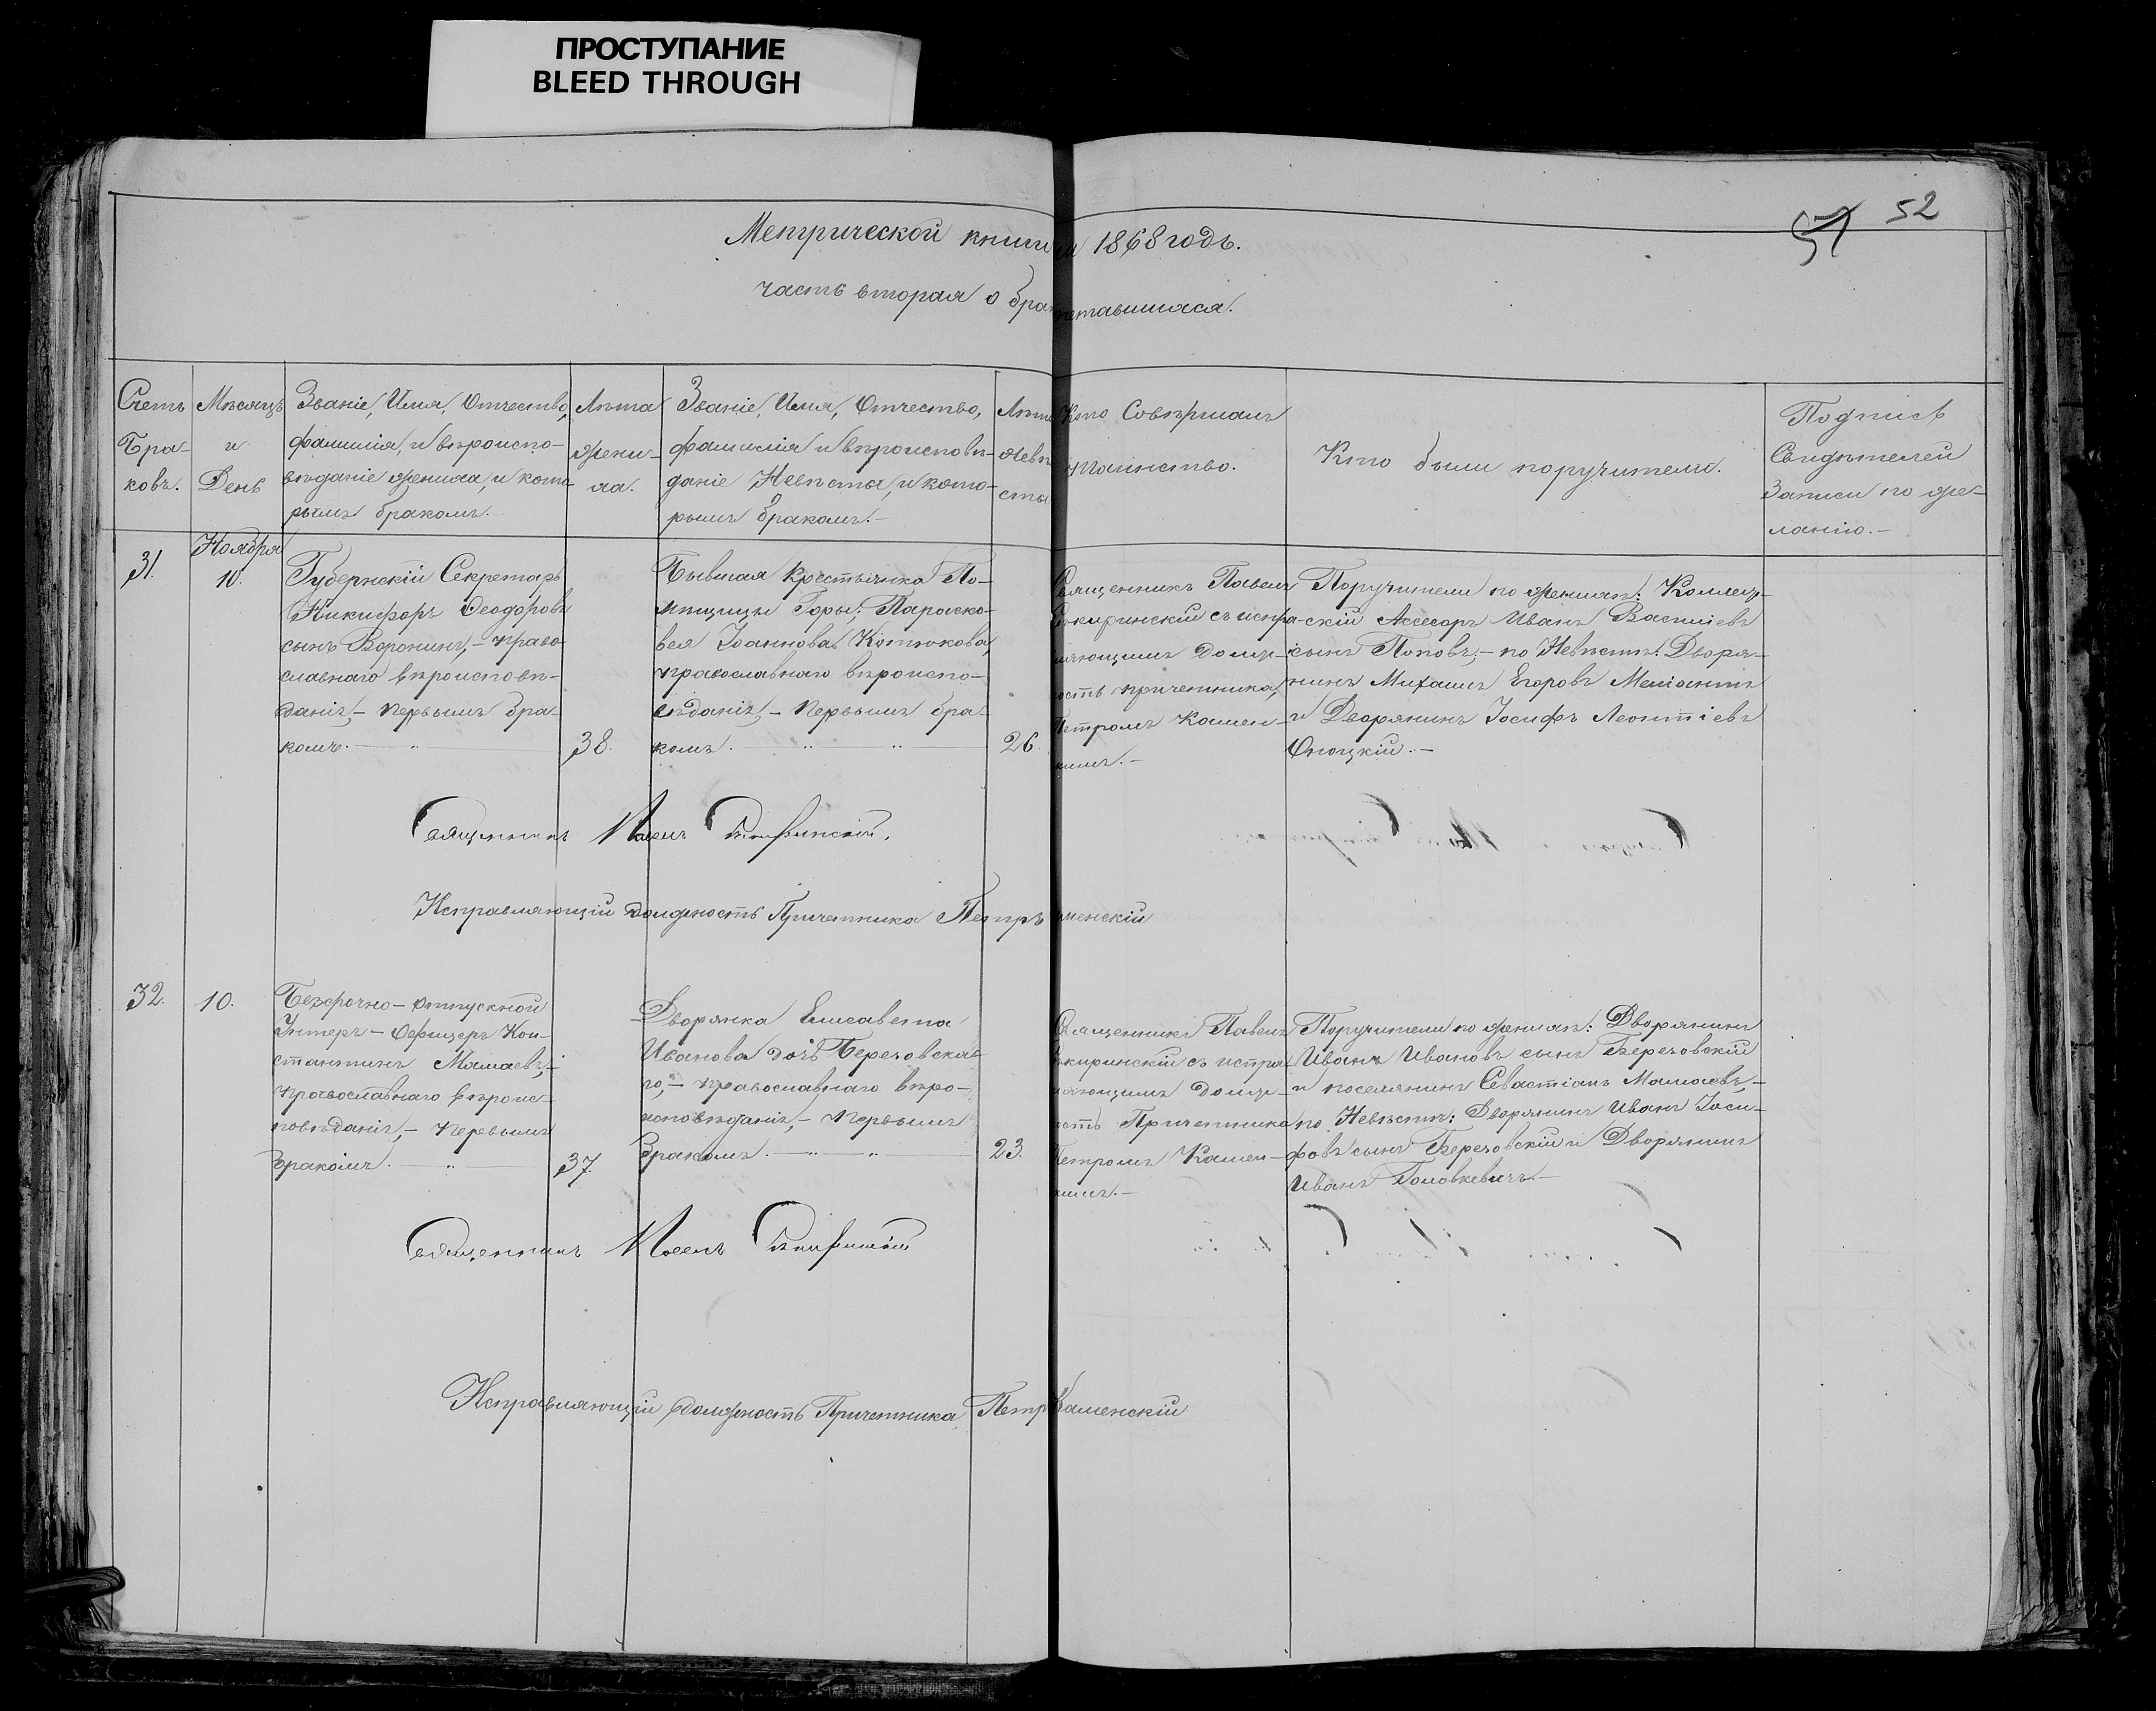 ПРОСТУПАНИЕ
BLEED THROUGH
52
51
Метрической книги на 1868 годъ.
часть вторая о бракосочетавшихся.
Счетъ
Бра-
ковъ.
Мѣсяцъ
и
День
Званіе, Имя, Отчество,
фамилія, и вѣроиспо-
вѣданіе жениха, и кото-
рымъ бракомъ.-
Лѣта
жени-
ха.
Званіе, Имя, Отчество,
фамилія и вѣроисповѣ-
даніе Невѣсты, и кото-
рымъ бракомъ.-
Лѣта
невѣ
сты
Кто Совѣршалъ
таинство.
Кто были поручители.
Подпись
Свидѣтелей
Записи по же-
ланію.-
31.
Ноября
10.
Губернскій Секретарь
Никифоръ Ѳеодоровъ
сынъ Воронинъ,- право-
славнаго вѣроисповѣ-
данія,- первымъ бра-
комъ.
38.
Бывшая Крестьянка По-
мѣщицы Горы, Параско-
вея Іоаннова Котюкова,
православнаго вѣроиспо-
вѣданія,- первымъ бра-
комъ.
26.
Священникъ Павелъ
съ испра-
вляющимъ долж-
ость причетника,
Петромъ Камен-
кимъ.-
Поручители по женихѣ: Коллеж-
скій Асесоръ Иванъ Василіевъ
сынъ Поповъ,- по Невѣстѣ: Дворя-
нинъ Михаилъ Егоровъ
и Дворянинъ Іосифъ Леонтіевъ
Священникъ Павелъ
Исправляющій должность Причетника Петръ менскій
32.
10.
Безсрочно-отпускной
Унтеръ-Офицеръ Кон-
стантинъ Мамаевъ,-
православнаго вѣроис-
повѣданія,- первымъ
бракомъ.
37
Дворянка Елисавета
Иванова дочь Березовска-
го,- православнаго вѣро-
исповѣданія,- первымъ
бракомъ.
23.
Священникъ Павелъ
съ испра-
вляющимъ долж-
ость Причетника
Петромъ Камен-
кимъ.-
Поручители по женихѣ: Дворянинъ
Иванъ Ивановъ сынъ Березовскій
и поселянинъ Севастіанъ Мамаевъ,-
по Невѣстѣ: Дворянинъ Иванъ Іоси-
фовъ сынъ Березовскій и Дворянинъ
Иванъ Головкевичъ.-
Священникъ Павелъ
Исправляющій должность Причетника, Петр Каменскій